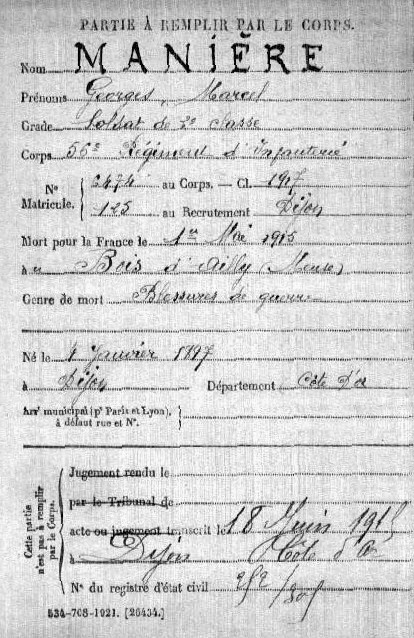 PARTIE À REMPLIR PAR LE CORPS.
Nom MANIÈRE
Prénoms Georges, Marcel
Grade Soldat de 2e classe
Corps 56e Régiment d'Infanterie
N° Matricule. 6474 au Corps. — Cl. 1917
125 au Recrutement Dijon
Mort pour la France le 1er Mai 1915
à au Bois d'Ailly (Meuse)
Genre de mort Blessures de guerre
Né le 4 Janvier 1897
à Dijon Département Côte D'or
Arrt municipal (pr Paris et Lyon), à défaut rue et N°.
Cette partie n'est pas à remplir par le Corps.
Jugement rendu le
par le Tribunal de
acte ou jugement transcrit le 18 Juin 191
à Dijon Côte d'Or
N° du registre d'état civil
534-708-1921. [26434.]